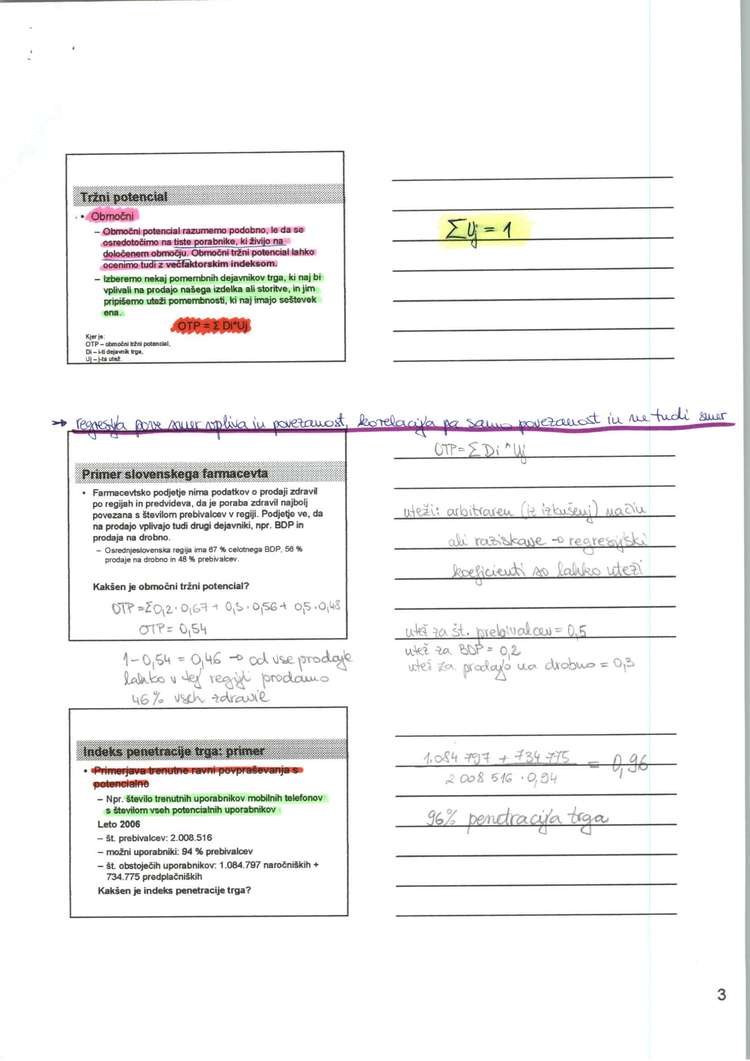 Tržni potencial
• Območni
– Območni potencial razumemo podobno, le da se
osredotočimo na tiste porabnike, ki živijo na
določenem območju. Območni tržni potencial lahko
ocenimo tudi z večfaktorskim indeksom.
– Izberemo nekaj pomembnih dejavnikov trga, ki naj bi
vplivali na prodajo našega izdelka ali storitve, in jim
pripišemo uteži pomembnosti, ki naj imajo seštevek
ena.
OTP = Σ Di*Uj
Kjer je:
OTP – območni tržni potencial,
Di – i-ti dejavnik trga,
Uj – j-ta utež.
ΣUj = 1
→ regresija pove smer vpliva in povezanost, korelacija pa samo povezanost in ne tudi smer
Primer slovenskega farmacevta
• Farmacevtsko podjetje nima podatkov o prodaji zdravil
po regijah in predvideva, da je poraba zdravil najbolj
povezana s številom prebivalcev v regiji. Podjetje ve, da
na prodajo vplivajo tudi drugi dejavniki, npr. BDP in
prodaja na drobno.
– Osrednjeslovenska regija ima 67 % celotnega BDP, 56 %
prodaje na drobno in 48 % prebivalcev.
Kakšen je območni tržni potencial?
OTP = Σ0,2 · 0,67 + 0,3 · 0,56 + 0,5 · 0,48
OTP = 0,54
OTP = ΣDi * Uj
uteži: arbitraren (iz izkušenj) način
ali raziskave → regresijski
koeficienti so lahko uteži
utež za št. prebivalcev = 0,5
utež za BDP = 0,2
utež za prodajo na drobno = 0,3
1 - 0,54 = 0,46 → od vse prodaje
lahko v tej regiji prodamo
46% vseh zdravil
Indeks penetracije trga: primer
• Primerjava trenutne ravni povpraševanja s
potencialno
– Npr. število trenutnih uporabnikov mobilnih telefonov
s številom vseh potencialnih uporabnikov
Leto 2006
– št. prebivalcev: 2.008.516
– možni uporabniki: 94 % prebivalcev
– št. obstoječih uporabnikov: 1.084.797 naročniških +
734.775 predplačniških
Kakšen je indeks penetracije trga?
1.084 797 + 734 775
= 0,96
2 008 516 · 0,94
96% penetracija trga
3